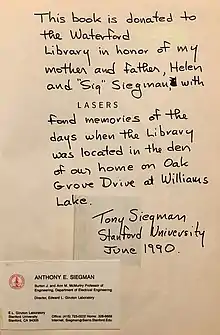 This book is donated to
the Waterford
Library in honor of my
mother and father, Helen
and "Sig" Siegman with
LASERS
fond memories of the
days when the Library
was located in the den
of our home on Oak
Grove Drive at Williams
Lake.
Tony Siegman
Stanford University
June 1990.
ANTHONY E. SIEGMAN
Burton J. and Ann M. McMurtry Professor of
Engineering, Department of Electrical Engineering
Director, Edward L. Ginzton Laboratory
E.L. Ginzton Laboratory
Stanford University
Stanford, CA 94305